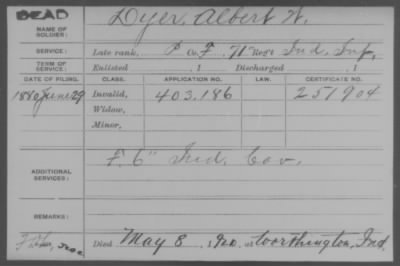 DEAD
NAME OF SOLDIER: Dyer, Albert W.
SERVICE: Late rank, P Co. F, 71" Reg't Ind. Inf,
TERM OF SERVICE: Enlisted , 1 Discharged , 1
DATE OF FILING. CLASS. APPLICATION NO. LAW. CERTIFICATE NO.
1880 June 29 Invalid, 403.186 251904
Widow,
Minor,
ADDITIONAL SERVICES: F. 6" Ind. Cav.
REMARKS:
Died May 8, 1920, at Worthington, Ind.